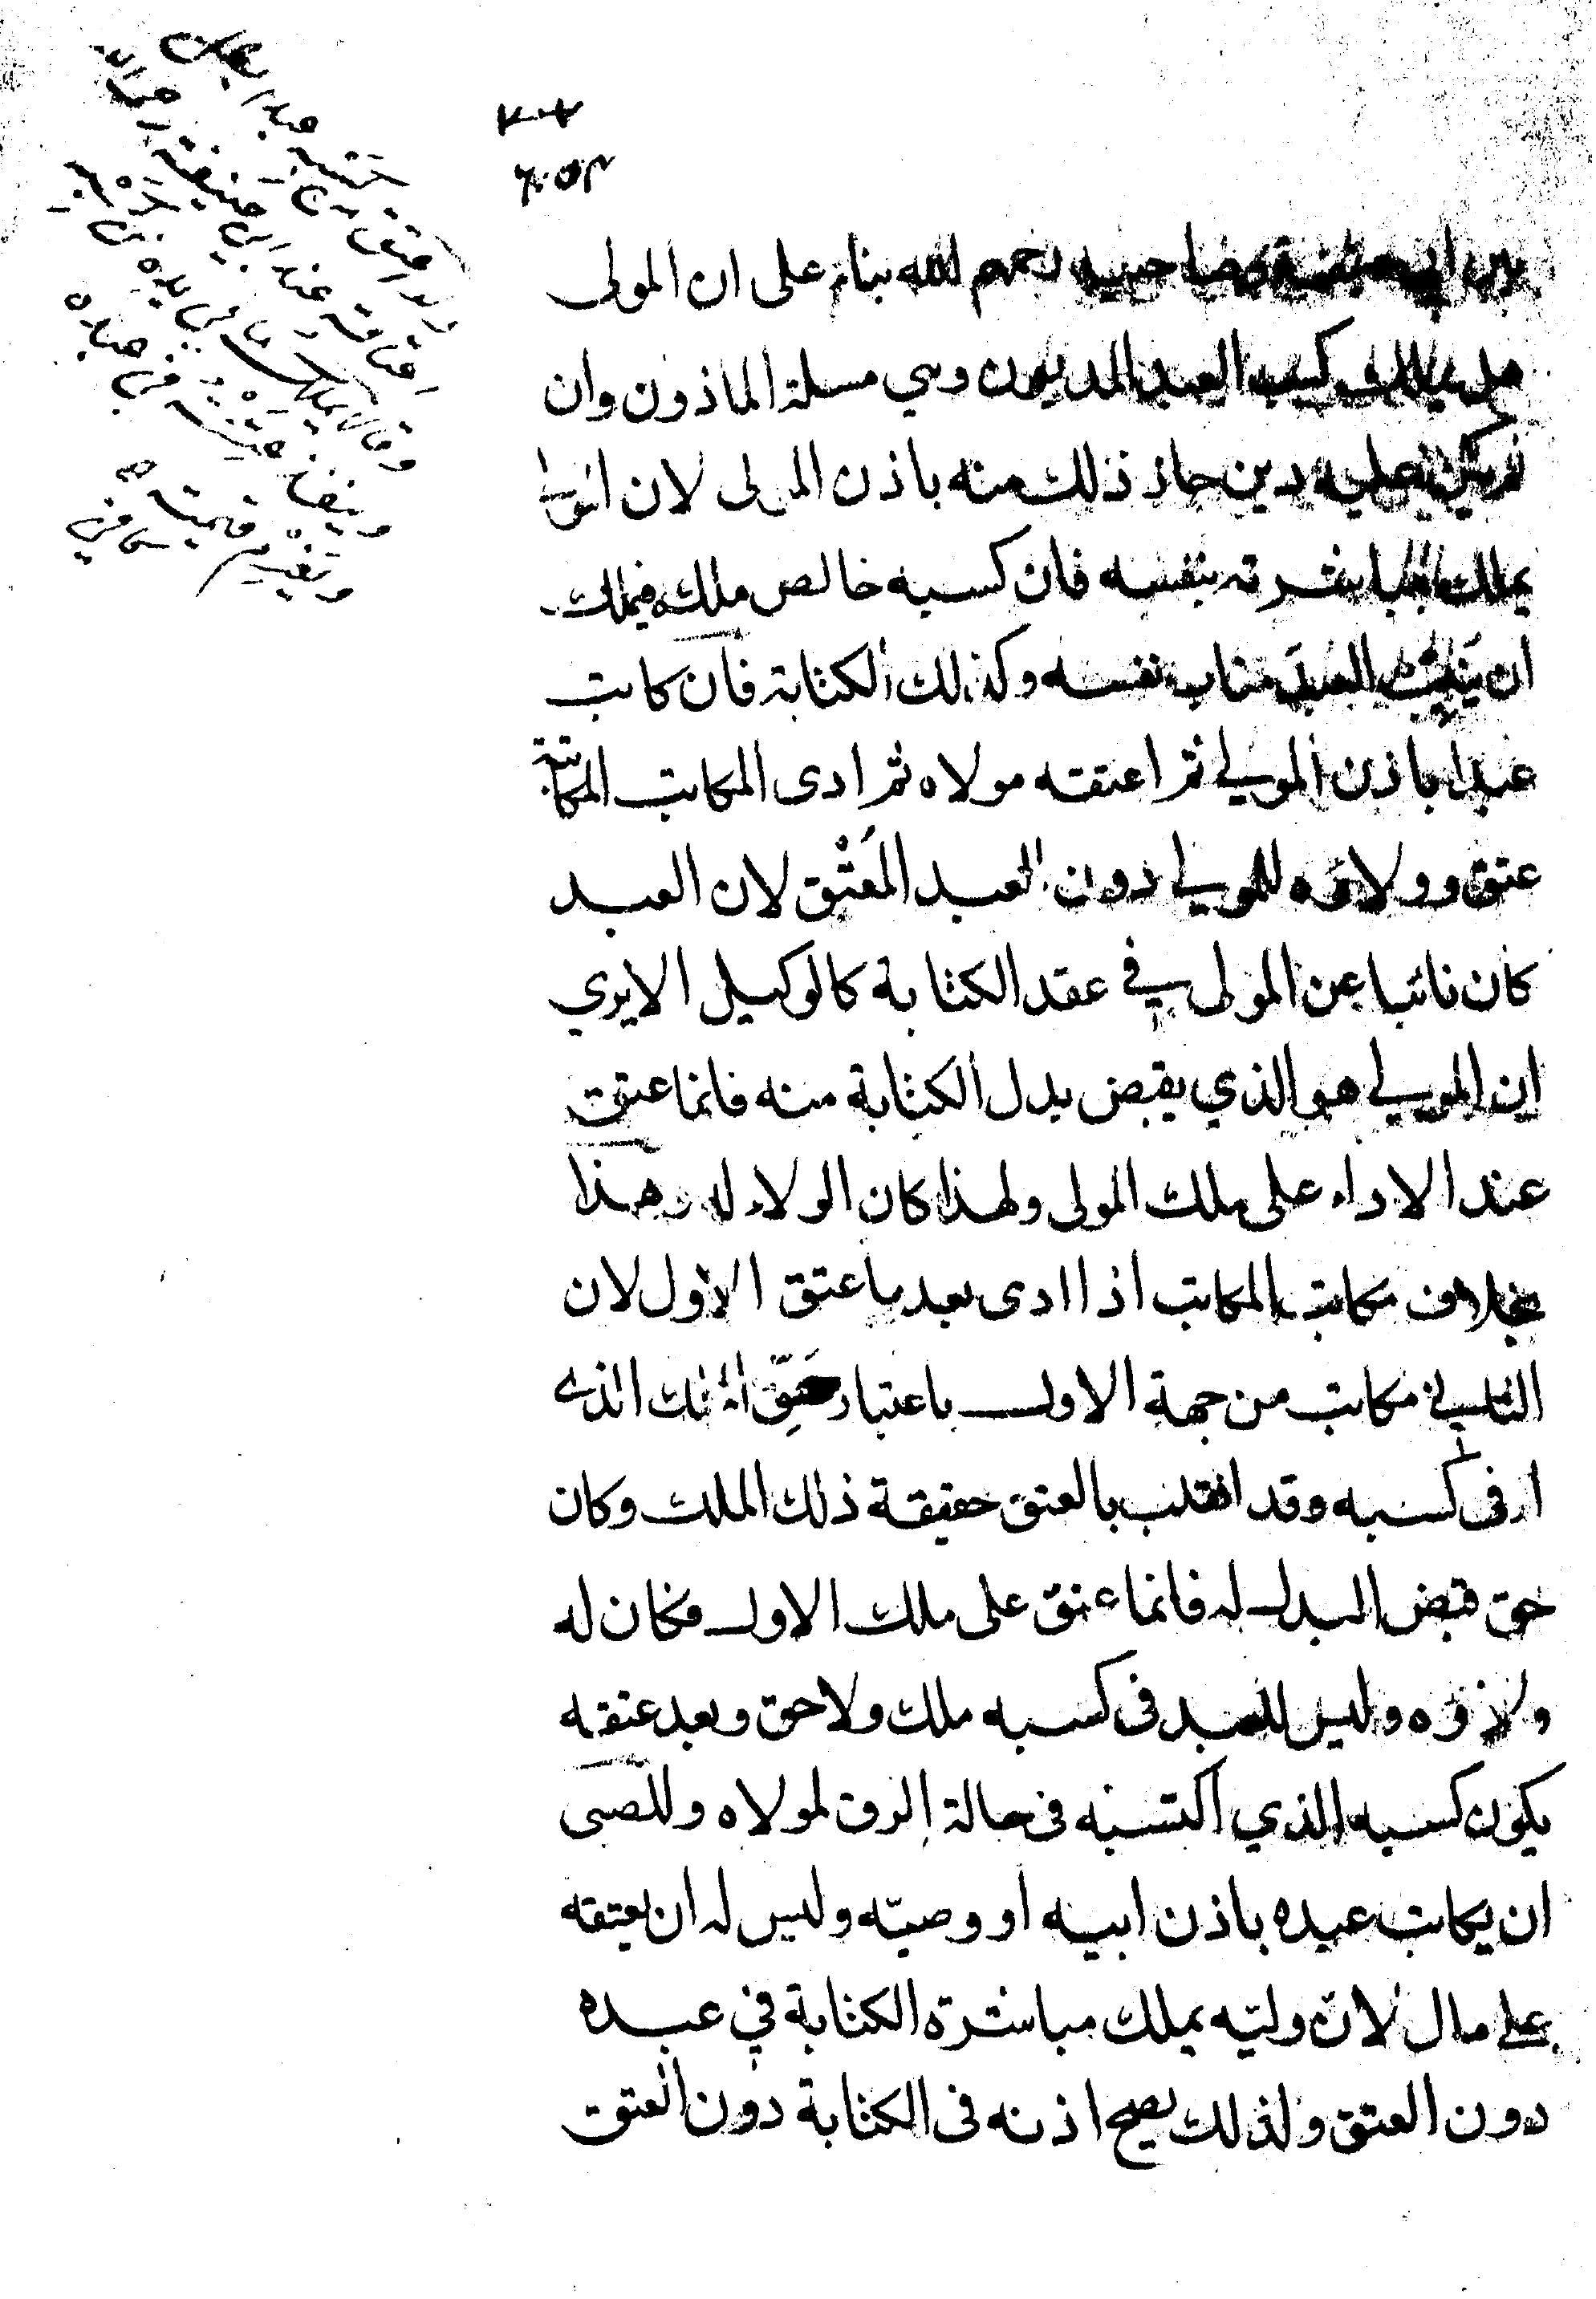 بين ابي حنيفة وصاحبيه رحمهم الله بناء على ان المولى
هل يملك كسب العبد المديون وهي مسلة الماذون وان
لم يكن عليه دين جاز ذلك منه باذن المولى لان المولى
يملك مباشرته بنفسه فان كسبه خالص ملكه فيملك
ان ينيب العبد مناب نفسه وكذلك الكتابة فان كاتب
عبدا باذن المولى ثم اعتقه مولاه ثم ادى المكاتب المكاتبة
عتق وولاؤه للمولى دون العبد المعتق لان العبد
كان نائبا عن المولى في عقد الكتابة كالوكيل الا يرى
ان المولى هو الذي يقبض بدل الكتابة منه فانما عتق
عند الاداء على ملك المولى ولهذا كان الولاء له وهذا
بخلاف مكاتب المكاتب اذا ادى بعد ما عتق الاول لان
الثاني مكاتب من جهة الاول باعتبار حق الملك الذي
له في كسبه وقد انقلب بالعتق حقيقة ذلك الملك وكان
حق قبض البدل له فانما عتق على ملك الاول فكان له
ولاؤه وليس للعبد في كسبه ملك ولا حق وبعد عتقه
يكون كسبه الذي اكتسبه في حالة الرق لمولاه وللصبي
ان يكاتب عبده باذن ابيه او وصيه وليس له ان يعتقه
على مال لان وليه يملك مباشرة الكتابة في عبده
دون العتق ولذلك يصح اذنه في الكتابة دون العتق